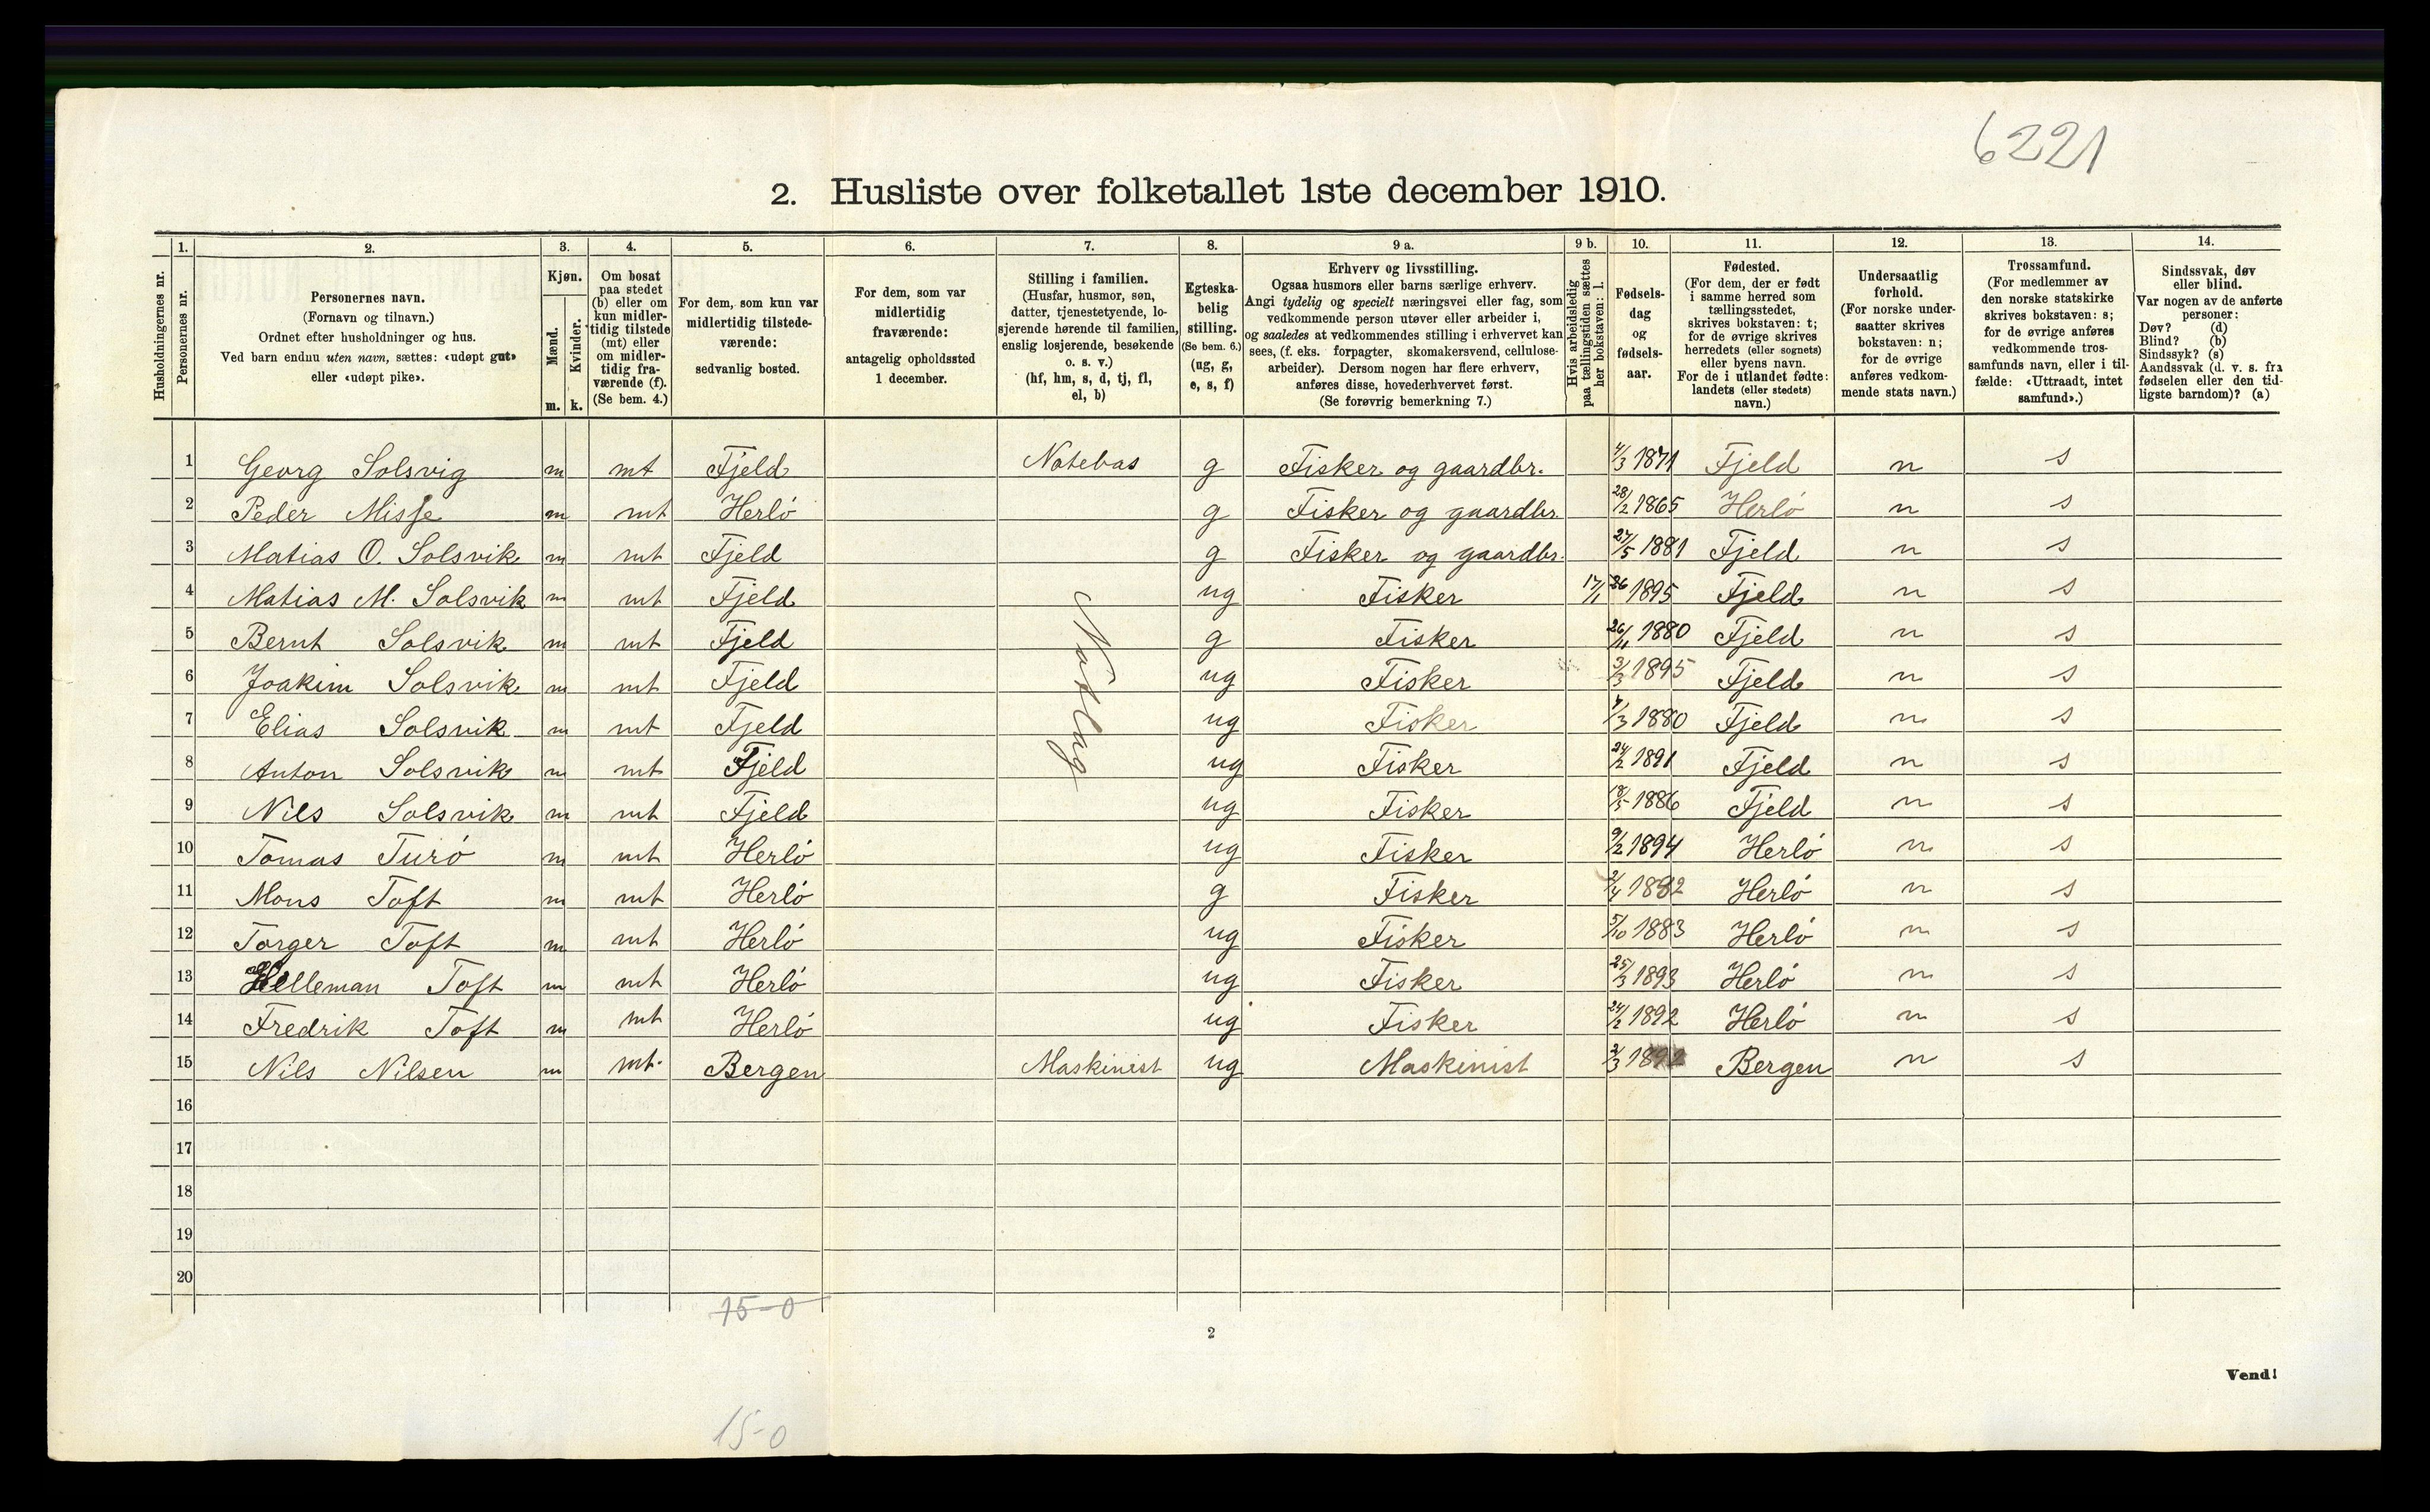 6221
2. Husliste over folketallet 1ste december 1910.
Husholdningernes nr.
1. Personernes nr.
2. Personernes navn. (Fornavn og tilnavn.) Ordnet efter husholdninger og hus. Ved barn endnu uten navn, sættes: «udøpt gut» eller «udøpt pike».
3. Kjøn. Mænd. m. Kvinder. k.
4. Om bosat paa stedet (b) eller om kun midlertidig tilstede (mt) eller om midlertidig fraværende (f). (Se bem. 4.)
5. For dem, som kun var midlertidig tilstedeværende: sedvanlig bosted.
6. For dem, som var midlertidig fraværende: antagelig opholdssted 1 december.
7. Stilling i familien. (Husfar, husmor, søn, datter, tjenestetyende, losjerende hørende til familien, enslig losjerende, besøkende o. s. v.) (hf, hm, s, d, tj, fl, el, b)
8. Egteskabelig stilling. (Se bem. 6.) (ug, g, e, s, f)
9 a. Erhverv og livsstilling. Ogsaa husmors eller barns særlige erhverv. Angi tydelig og specielt næringsvei eller fag, som vedkommende person utøver eller arbeider i, og saaledes at vedkommendes stilling i erhvervet kan sees, (f. eks. forpagter, skomakersvend, cellulosearbeider). Dersom nogen har flere erhverv, anføres disse, hovederhvervet først. (Se forøvrig bemerkning 7.)
9 b. Hvis arbeidsledig paa tællingstiden sættes her bokstaven: l.
10. Fødselsdag og fødselsaar.
11. Fødested. (For dem, der er født i samme herred som tællingsstedet, skrives bokstaven: t; for de øvrige skrives herredets (eller sognets) eller byens navn. For de i utlandet fødte: landets (eller stedets) navn.)
12. Undersaatlig forhold. (For norske undersaatter skrives bokstaven: n; for de øvrige anføres vedkommende stats navn.)
13. Trossamfund. (For medlemmer av den norske statskirke skrives bokstaven: s; for de øvrige anføres vedkommende trossamfunds navn, eller i tilfælde: «Uttraadt, intet samfund».)
14. Sindssvak, døv eller blind. Var nogen av de anførte personer: Døv? (d) Blind? (b) Sindssyk? (s) Aandssvak (d. v. s. fra fødselen eller den tidligste barndom)? (a)
1 Georg Solsvig m mt Fjeld Notebas g Fisker og gaardbr. 4/3 1871 Fjeld n s
2 Peder Misje m mt Herlö g Fisker og gaardbr. 28/2 1865 Herlö n s
3 Matias O. Solsvik m mt Fjeld g Fisker og gaardbr. 27/5 1881 Fjeld n s
4 Matias M. Solsvik m mt Fjeld ug Fisker 17/11 1895 Fjeld n s
5 Bernt Solsvik m mt Fjeld g Fisker 26/11 1880 Fjeld n s
6 Joakim Solsvik m mt Fjeld ug Fisker 3/3 1895 Fjeld n s
7 Elias Solsvik m mt Fjeld ug Fisker 7/3 1880 Fjeld n s
8 Anton Solsvik m mt Fjeld ug Fisker 24/2 1891 Fjeld n s
9 Nils Solsvik m mt Fjeld ug Fisker 18/5 1886 Fjeld n s
10 Tomas Turö m mt Herlö ug Fisker 9/2 1894 Herlö n s
11 Mons Toft m mt Herlö g Fisker 2/4 1882 Herlö n s
12 Torger Toft m mt Herlö ug Fisker 5/10 1883 Herlö n s
13 Helleman Toft m mt Herlö ug Fisker 25/3 1893 Herlö n s
14 Fredrik Toft m mt Herlö ug Fisker 24/2 1892 Herlö n s
15 Nils Nilsen m mt. Bergen Maskinist ug Maskinist 3/3 Bergen n s
Notlag
16
17
18
19
20
15-0
2
Vend!
15-0